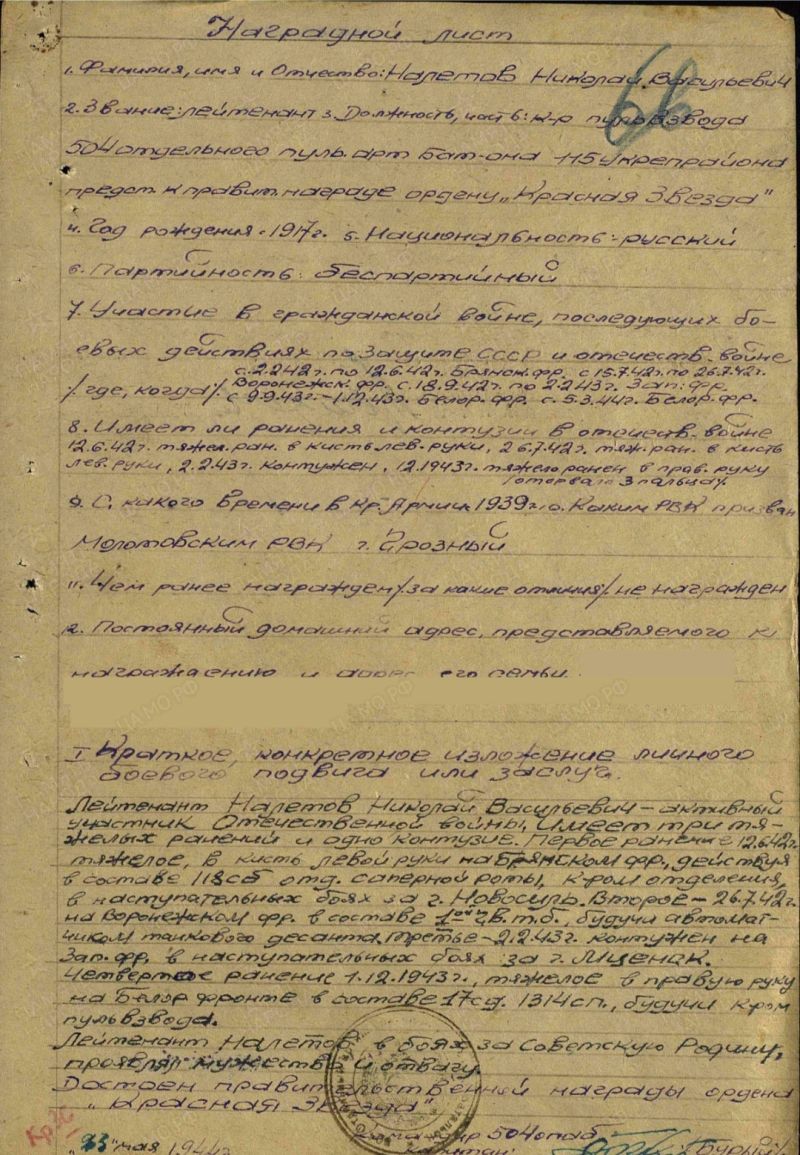 Наградной лист
1. Фамилия, имя и Отчество: Налетов Николай Васильевич
2. Звание: лейтенант 3. Должность, часть: к-р пульвзвода
504 отдельного пуль. арт бат-она 115 укрепрайона
предст. к правит. награде ордену „Красная Звезда"
4. Год рождения - 1917г. 5. Национальность: русский
6. Партийность: беспартийный
7. Участие в гражданской войне, последующих бо-
евых действиях по защите СССР и отечеств. войне
с. 2.2 42г. по 12.6.42г. Брянск. фр. с 15.7.42г. по 26.7.42г.
/где, когда/. Воронежск. фр. с. 18.9.42г. по 2.2.43г. Зап. фр.
с 9.9.43г. - 1.12.43г. Белор. фр. с. 5.3.44г. Белор. фр.
8. Имеет ли ранения и контузии в отечеств. войне
12.6.42г. тяжел. ран. в кисть лев. руки, 26.7.42г. тяж. ран. в кисть
лев. руки, 2.2.43г. контужен, 1.12.1943г. тяжело ранен в прав. руку
/оторвало 3 пальца/.
9. С какого времени в Кр. Армии 1939г. 10. Каким РВК призван
Молотовским РВК г. Грозный
11. Чем ранее награжден/за какие отличия/. не награжден
12. Постоянный домашний адрес, представляемого к
награждению и адрес его семьи.
I Краткое, конкретное изложение личного
боевого подвига или заслуг.
Лейтенант Налетов Николай Васильевич - активный
участник Отечественной войны, имеет три тя-
желых ранений и одно контузие. Первое ранение 12.6.42г.
тяжелое, в кисть левой руки на Брянском фр., действуя
в составе 118сб отд. саперной роты, к-ром отделения,
в наступательных боях за г. Новосиль. Второе - 26.7.42г.
на Воронежском фр. в составе 1ой гв. т. б., будучи автомат-
чиком танкового десанта. Третье - 2.2.43г. контужен на
Зап. фр. в наступательных боях за г. Мценск.
Четвертое ранение 1.12.1943г., тяжелое в правую руку
на Белор фронте в составе 17сд. 1314сп., будучи к-ром
пульвзвода.
Лейтенант Налетов в боях за Советскую Родину,
проявлял мужество и отвагу.
Достоин правительственной награды ордена
„Красная Звезда"
КрЗ
Командир 504 опаб
„23" мая 1944г. Капитан: /Бурный/